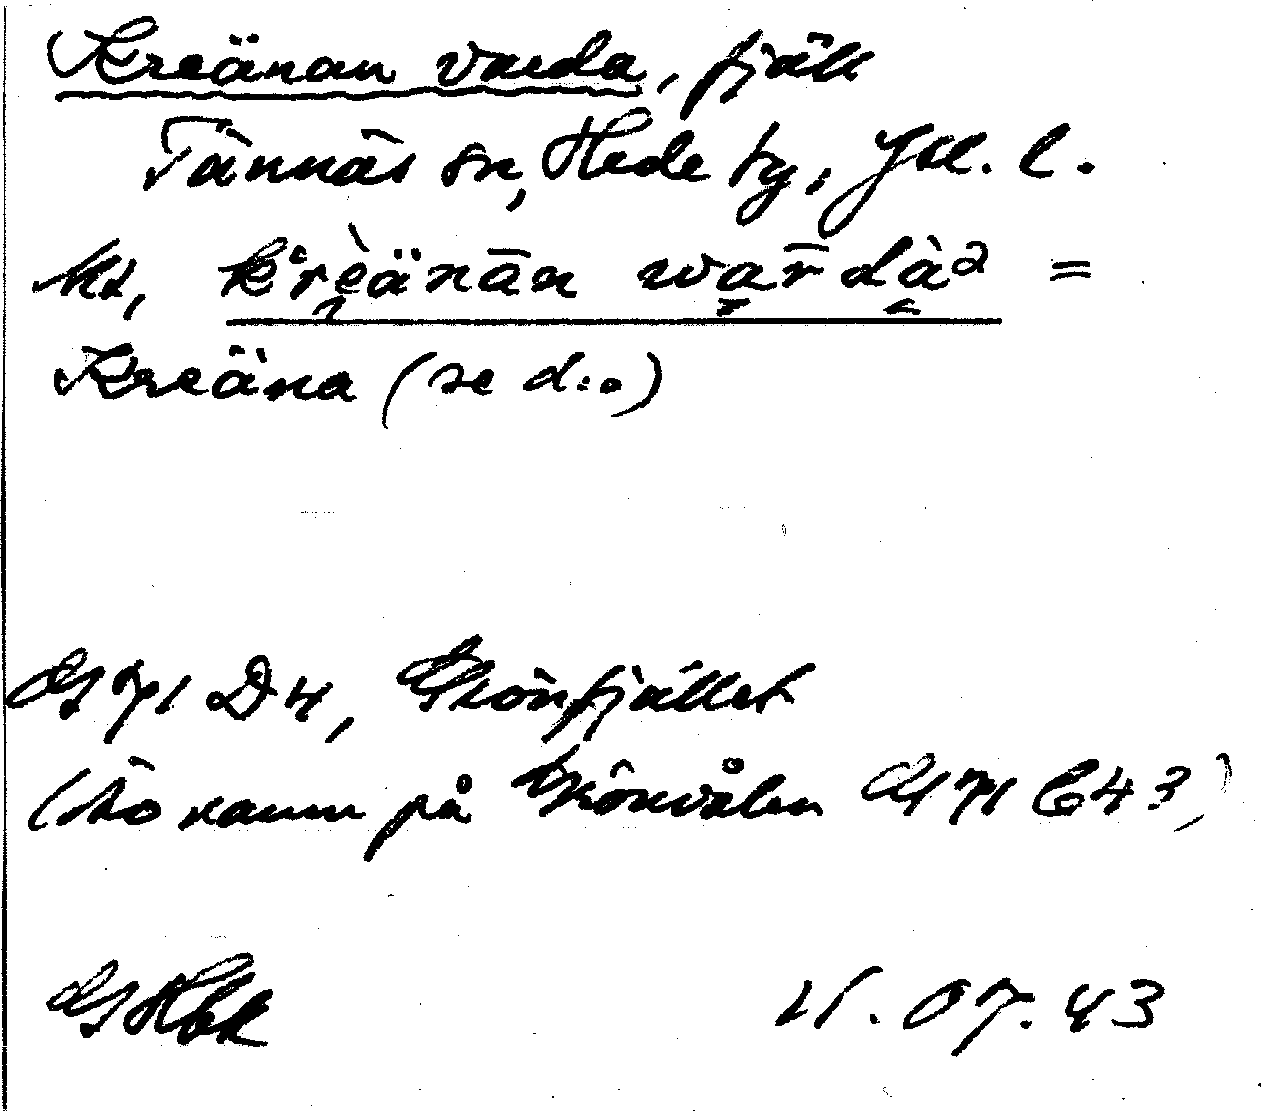 Kreänan varda, fjäll
Tännäs sn, Hede tg, Jtl. l.
kreänān wardà² =
Kreäna (se d:o)
D4, Skönfjället
namn på Skönvålen C43)
07.43